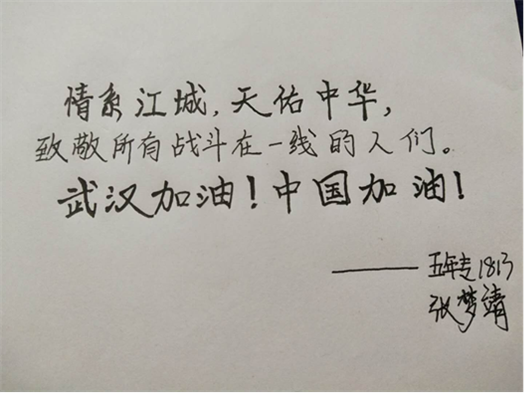 情系江城，天佑中华，
致敬所有战斗在一线的人们。
武汉加油！中国加油！
——五年专1813
张梦靖